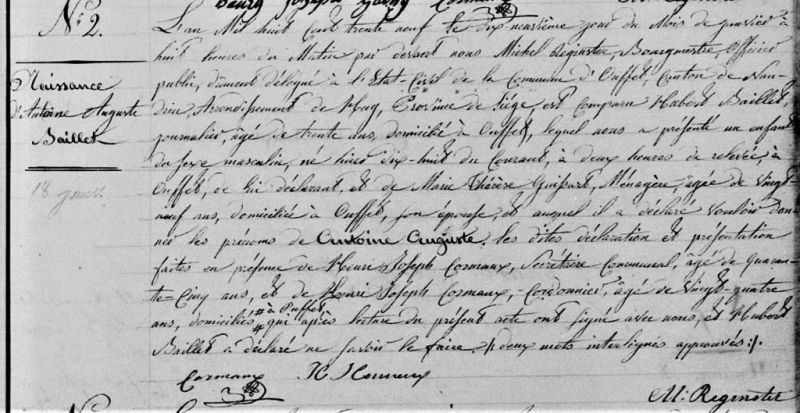 N° 2.
Naissance
d'Antoine Auguste
Baillet
18 janv.
L'an Mil huit Cent trente neuf le dix neuvième jour du Mois de janvier à
huit heures du Matin par devant nous Michel Reginster, Bourgmestre, Officier
public, dument délégué à l'Etat-Civil de la Commune d'Ouffet, Canton de Nan-
drin, Arrondissement de Huy, Province de Liége est Comparu Hubert Baillet,
journalier, âgé de trente ans, domicilié à Ouffet, lequel nous a présenté un enfant
du sexe masculin, né hier dix-huit du Courant, à deux heures de relevée, à
Ouffet, de lui déclarant, et de Marie Thérèse Guispart, Ménagère, âgée de Vingt
neuf ans, domiciliée à Ouffet, son épouse, et auquel il a déclaré Vouloir don-
ner les prénoms de Antoine Auguste. les dites déclaration et présentation
faites en présence de Henri Joseph Cormaux, Secrétaire Communal, âgé de quaran-
te Cinq ans, et de Henri Joseph Cormaux, Cordonnier, âgé de Vingt-quatre
# à Ouffet,
ans, domiciliés # qui après lecture du présent acte ont signé avec nous, et Hubert
Baillet a déclaré ne savoir le faire, # deux mots interlignés approuvés :/.
Cormaux
M. Reginster